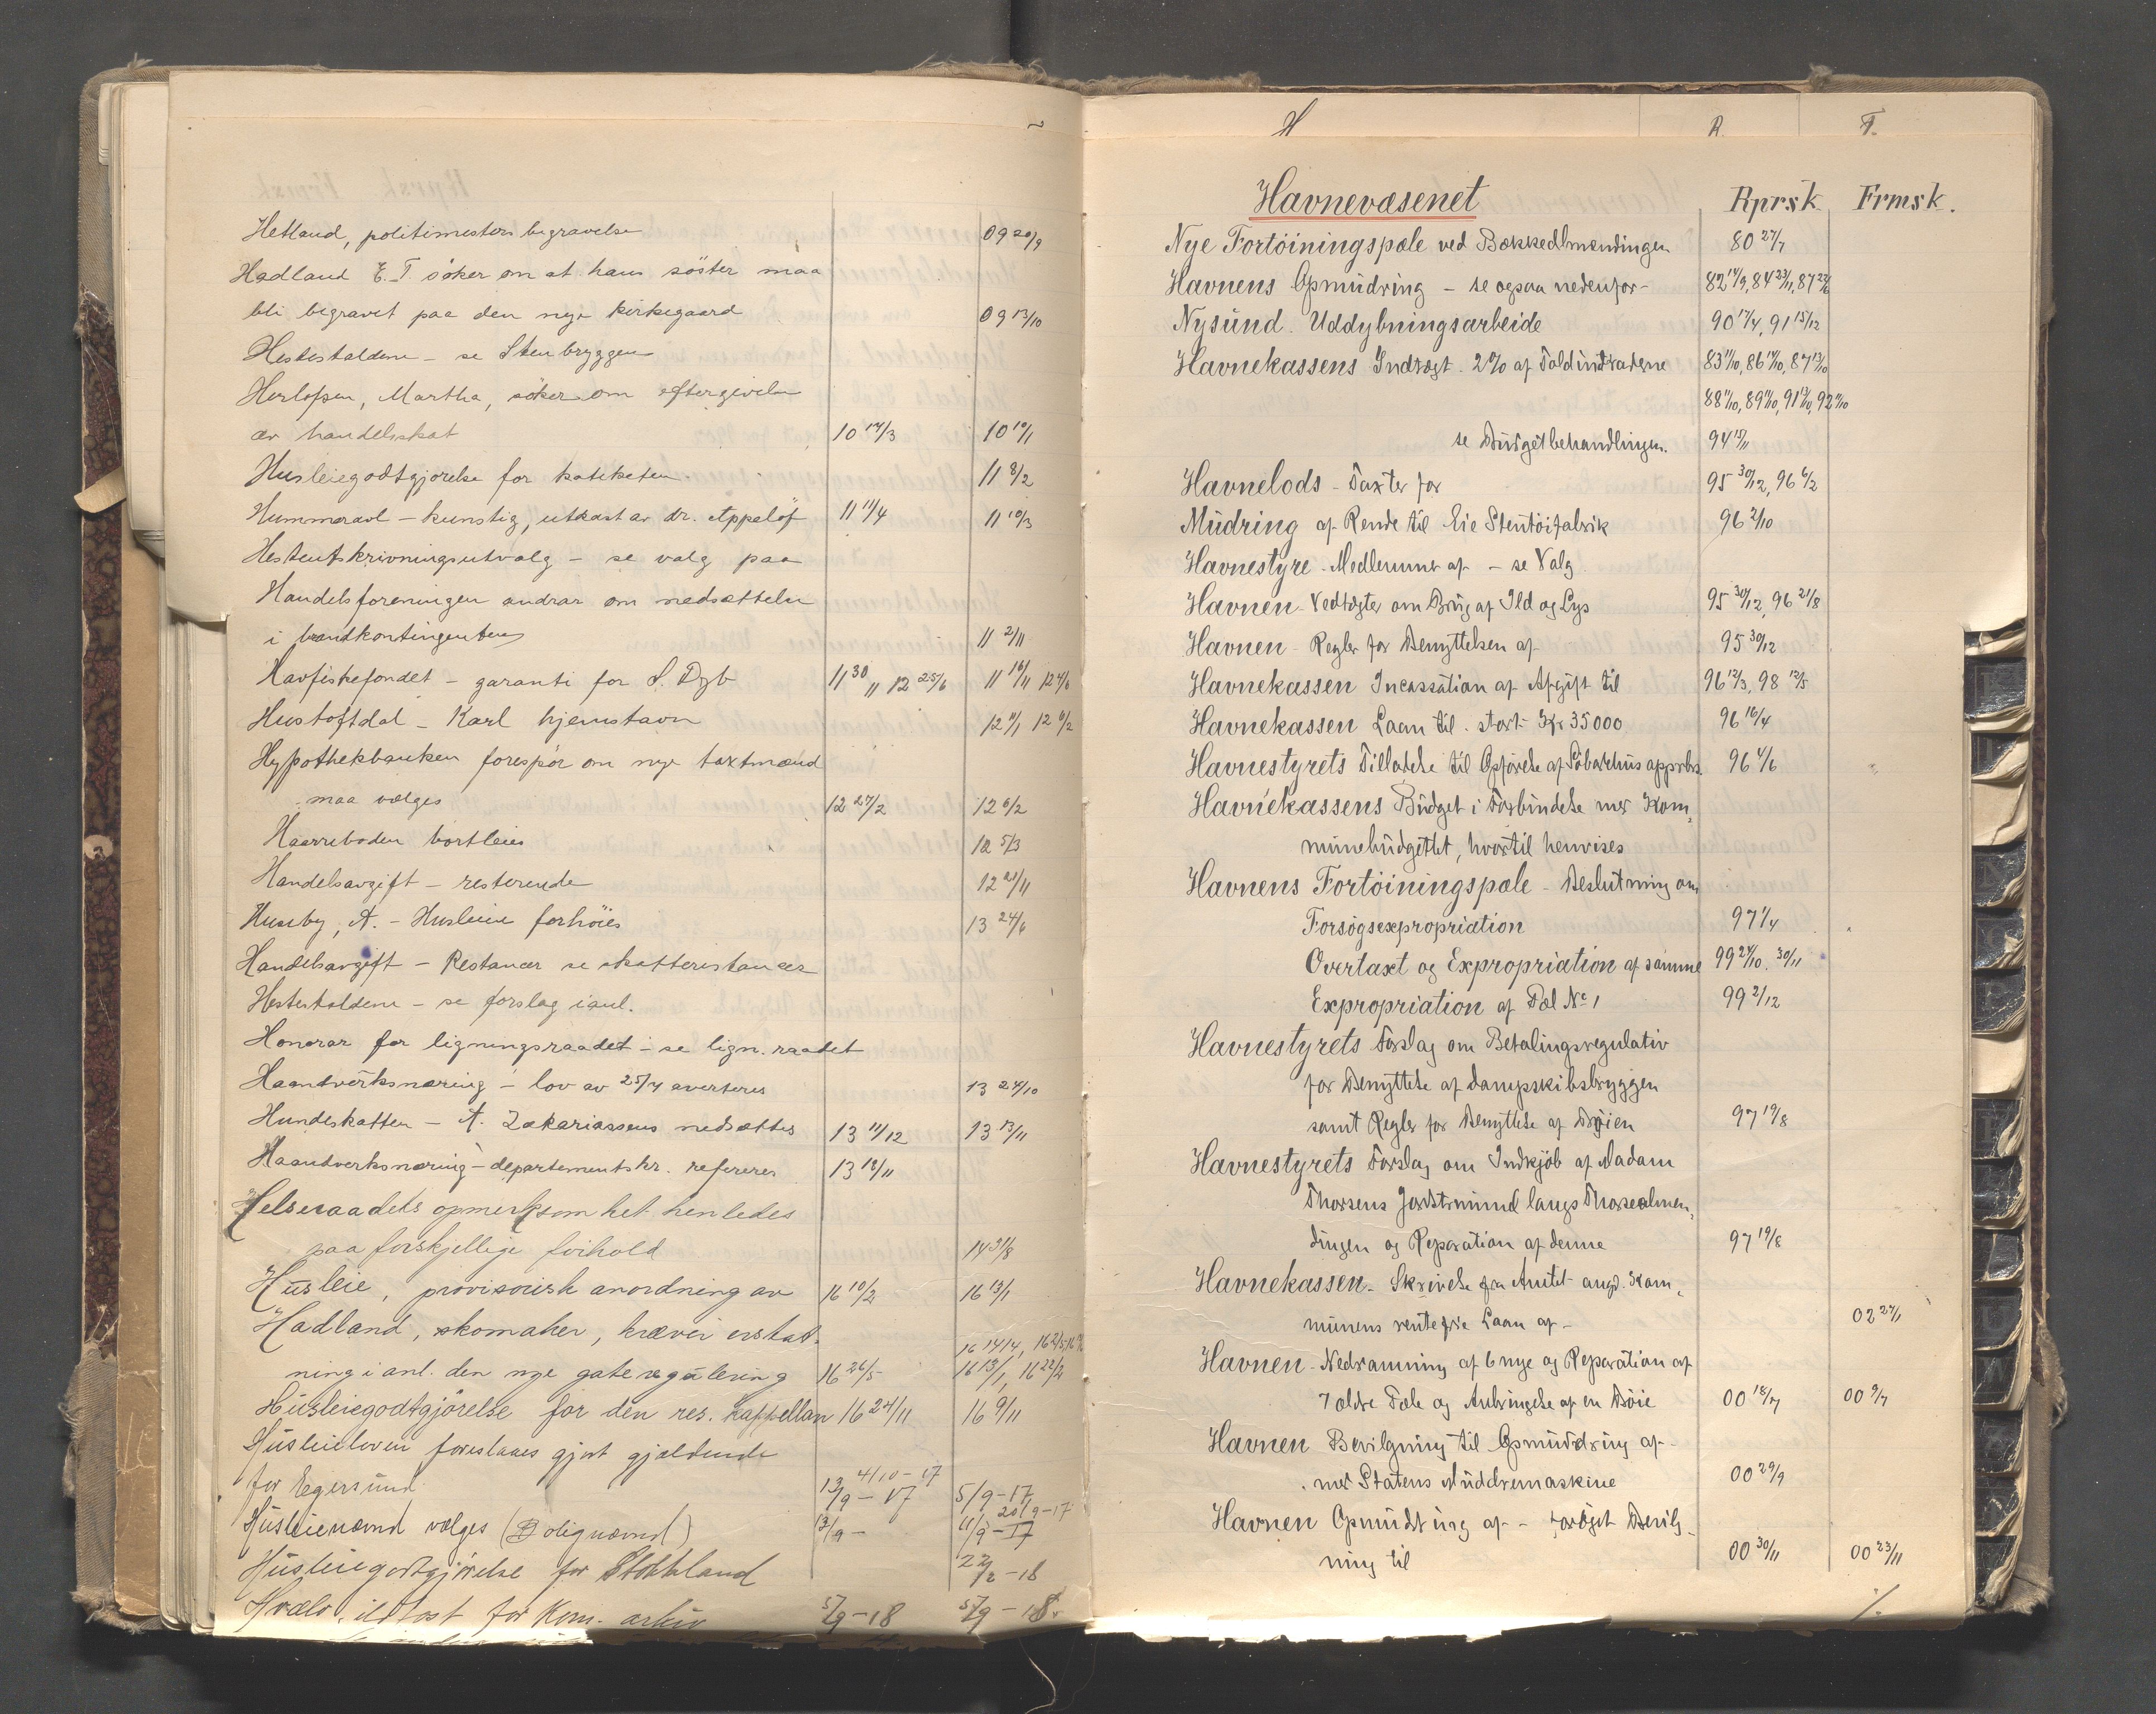 Hetland, politimesters begravelse 09 20/9
Hadland E. T søker om at hans søster maa
bli begravet paa den nye kirkegaard 09 13/10
Hestestaldene - se Stenbryggen
Herlofsen, Martha, søker om eftergivelse
av handelsskat 10 14/3 10 19/1
Husleiegodtgjørelse for kateketen. 11 8/2
Hummeravl - kunstig, utkast av dr. Appeløf 11 11/4 11 10/3
Hesteutskrivningsutvalg - se valg paa
Handelsforeningen andrar om nedsættelse
i brandkontingenten 11 2/11
Havfiskefondet - garanti for S. Dyb 11 30/11 12 25/6 11 16/11 12 4/6
Hustoftdal - Karl hjemstavn 12 9/1 12 6/2
Hypothekbanken forespør om nye taxtmænd
maa vælges 12 27/2 12 6/2
Haarreboden bortleies 12 5/3
Handelsavgift - resterende 12 20/11
Huseby, A. - Husleie forhøies 13 24/6
Handelsavgift - Restancer se skatterestancer
Hestestaldene - se forslag i anl.
Honorar for ligningsraadet - se lign. raadet
Haandverksnæring - lov av 25/7 averteres 13 24/10
Hundeskatten - A. Zakariassens nedsættes 13 11/12 13 13/11
Haandverksnæring - departementskr. refereres 13 18/11
Helseraadets opmerksomhet henledes
paa forskjellige forhold 14 31/8
Husleie, provisorisk anordning av 16 10/2 16 13/1
Hadland, skomaker, kræver erstat-
ning i anl. den nye gateregulering 16 26/5 16 13/1, 16 22/2
Husleiegodtgjørelse for den res. kappellan 16 24/11 16 9/11
Husleieloven foreslaaes gjort gjældende
for Egersund 13/9 - 17 4/10 - 17 5/9 - 17
Husleienævnd vælges (Bolignævnd) 13/9 - 11/9 - 17 20/9 - 17
Husleiegodtgjørelse for Stokkland 22/2 - 18
Hvælv, ildfast for Kom. arkiv 5/9 - 18 5/9 - 18
H R. F.
Havnevæsenet Rprsk. Frmsk.
Nye Fortöiningspæle ved Bækkedlmændingen 80 27/7
Havnens Opmudring - se ogsaa nedenfor - 82 14/9, 84 23/11, 87 23/6
Nysund. Uddybningsarbeide 90 17/4, 91 15/12
Havnekassens Indtægt. 2% af Toldindtræderne 83 11/10, 86 14/10, 87 13/10
88 11/10, 89 11/10, 91 12/10, 92 11/10
se Budgetbehandlingen. 94 15/11
Havnelods - Taxter for 95 30/12, 96 6/2
Mudring af Rende til Eie Stentöifabrik 96 2/10
Havnestyre - Medlemmer af - se Valg
Havnen - Vedtægter om Brug af Ild og Lys 95 30/12, 96 21/8
Havnen - Regler for Benyttelsen af 95 30/12
Havnekassen Incassation af Afgift til 96 12/3, 98 12/5
Havnekassen Laan til. stort Kr 35000 96 16/4
Havnestyrets Tilladelse til Opförelse af Söbarkhus approbs. 96 4/6
Havnekassens Budget i Forbindelse med Kom-
munebudgettet, hvortil henvises
Havnens Fortöiningspæle - Beslutning om
Forsögsexpropriation 97 1/4
Overtaxt og Expropriation af samme 99 24/10. 30/11
Expropriation af Pæl No 1 99 2/12
Havnestyrets Forslag om Betalingsregulativ
for Benyttelse af Dampskibsbryggen
samt Regler for Benyttelse af Bøien 97 19/8
Havnestyrets Forslag om Indkjöb af Madam
Thorsens Jordstrimmel langs Thorsealmen-
dingen og Reparation af denne 97 19/8
Havnekassen - Skrivelse fra Amtet angd. Kom-
munens rentefrie Laan af - 02 27/1
Havnen - Nedramning af 6 nye og Reparation af
7 ældre Pæle og Anbringelse af en Böie 00 18/7 00 9/7
Havnen Bevilgning til Opmuddring af -
med Statens Muddremaskine 00 29/9
Havnen Opmudring af - forøget Bevilg-
ning til 00 30/11 00 23/11